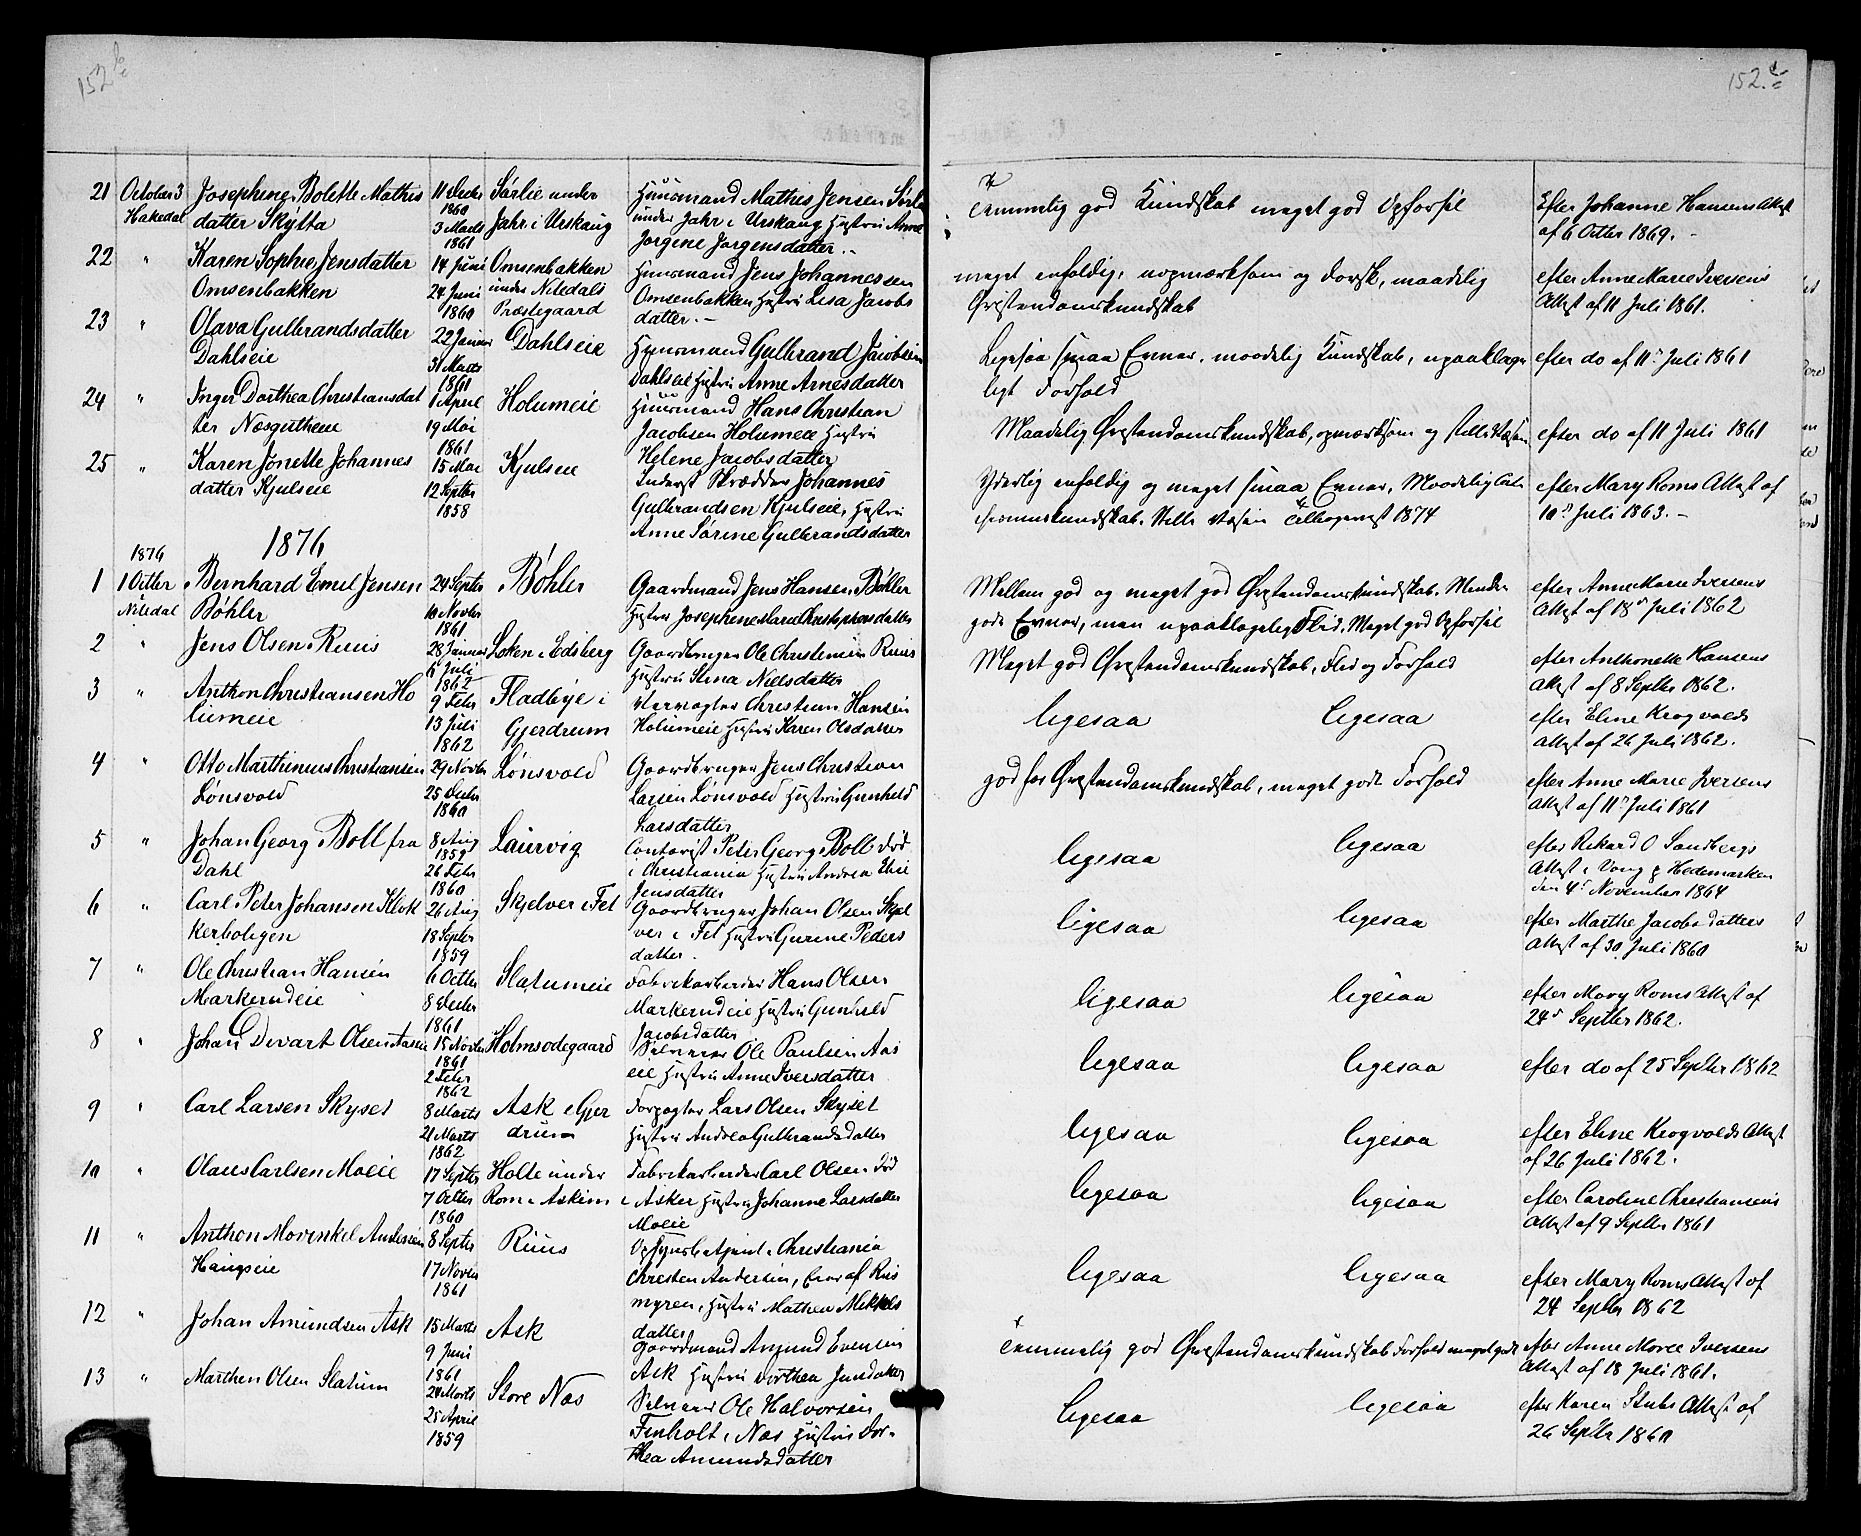 152 b
152. c
21 October 3 Josephine Bolette Mathis 11 Decbr Sørlie under Huusmand Mathis Jensen Sørlie Temmelig god Kundskab meget god Opførsel Efter Johanne Hansens Attest
Hakedal datter Skytta 1860 3 Marts 1861 Jahr i Urskaug under Jahr i Urskaug Hustru Anne af 6 Octbr 1869.
Jørgine Jørgensdatter.
22 " Karen Sophie Jensdatter 14 Juni Omsenbakken Huusmand Jens Johannessen meget enfoldig, uopmærksom og dorsk, maadelig efter Anne Marie Iversens
Omsenbakken 24 Juni 1860 under Nitedals Præstegaard Omsenbakken Hustru Lisa Jacobs Christendomskundskab Attest af 11 Juli 1861.
datter.
23 " Olava Gulbrandsdatter 22 Januar Dahlseie Huusmand Gulbrand Jacobsen Ligesaa smaa Evner, maadelig Kundskab, upaaklage efter do af 11 Juli 1861
Dahlseie 31 Marts 1861 Dahlseie Hustru Anne Arnesdatter ligt Forhold
24 " Inger Dorthea Christiansdat 1 April Holumeie Huusmand Hans Christian Maadelig Christendomskundskab, opmærksom og stille Væsen efter do af 11 Juli 1861
ter Næsguthene 19 Mai 1861 Jacobsen Holumeie Hustru
Helene Jacobsdatter
25 " Karen Jonette Johannes 15 Mai Kjulseie Inderst Skrædder Johannes Yderlig enfoldig og meget smaa Evner, Maadelig Chri efter Mary Roms Attest af
datter Kjulseie 12 Septbr 1858 Gulbrandsen Kjulseie, Hustru stendomskundskab. Stille Væsen Tilbagevist 1874 10 Juli 1863.
Anne Sørine Gulbrandsdatter
1876
1876
1 1 Octbr Bernhard Emil Jensen 24 Septbr Bøhler Gaardmand Jens Hansen Bøhler Mellem god og meget god Christendomskundskab. Mindre efter Anne Marie Iversens
Nitedal Bøhler 10 Novbr 1861 Hustru Josephine Maria Christophersdatter gode Evner, men upaaklagelig Flid. Meget god Opførsel Attest af 18 Juli 1862
2 " Jens Olsen Ruus 28 Januar Løken i Eidsberg Gaardbruger Ole Christensen Ruus Meget god Christendomskundskab, Flid og Forhold efter Anthonette Hansens
6 Juli 1862 Hustru Stina Nielsdatter Attest af 8 Septbr 1862.
3 " Anthon Christiansen Ho 9 Febr Fladbye i Christian Hansen ligesaa ligesaa efter Eline Krogvolds
lumeie 13 Juli 1862 Gjerdrum Holumeie Hustru Karen Olsdatter Attest af 26 Juli 1862.
4 " Otto Marthinius Christiansen 29 Novbr Lønsvold Gaardbruger Jens Christian god for Christendomskundskab, meget godt Forhold efter Anne Marie Iversens
Lønsvold 25 Decbr 1860 Larsen Lønsvold Hustru Gunhild Attest af 11 Juli 1861
Larsdatter
5 " Johan Georg Boll fra 8 Aug 1859 Laurvig Contorist Peter Georg Boll død ligesaa ligesaa efter Rikard O Sandbergs
Dahl 26 Febr 1860 i Christiania Hustru Andrea Elise Attest i Vang p Hedemarken
Jensdatter den 4 November 1864
6 " Carl Peter Johansen Klok 26 Aug Skjelver i Fet Gaardbruger Johan Olsen Skjel ligesaa ligesaa efter Marthe Jacobsdatters
kerboligen 18 Septbr 1859 ver i Fet Hustru Gurine Peders Attest af 30 Juli 1860
datter.
7 " Ole Christian Hansen 6 Octbr Slatumeie Fabrikarbeider Hans Olsen ligesaa ligesaa efter Mary Roms Attest af
Markerudeie 8 Decbr 1861 Markerudeie Hustru Gunhild 24 Septbr 1862.
Jacobsdatter
8 " Johan Devart Olsen 15 Novbr 1861 Holmsødegaard Selveier Ole Paulsen Aas ligesaa ligesaa efter do af 25 Septbr 1862
2 Febr 1862 eie Hustru Anne Iversdatter
9 " Carl Larsen Skyset 8 Marts Ask i Gjer Forpagter Lars Olsen Skyset ligesaa ligesaa efter Eline Krogvolds Attest
21 Marts 1862 drum Hustru Andrea Gulbrandsdatter af 26 Juli 1862.
10 " Olaus Carlsen Moeie 17 Septbr Holte under Fabrikarbeider Carl Olsen død ligesaa ligesaa efter Caroline Christiansens
7 Octbr 1860 Rom i Askim i Asker Hustru Johanne Larsdatter Attest af 9 Septbr 1861
Moeie
11 " Anthon Morenkel Andersen 8 Septbr Ruus Opsynsbetjent i Christiania ligesaa ligesaa efter Mary Roms Attest af
Haugseie 17 Novbr 1861 Christen Andersen, Eier af Ruus 24 Septbr 1862
myren, Hustru Mathea Mikkels
datter
12 " Johan Amundsen Ask 15 Marts Ask Gaardmand Amund Evensen Temmelig god Christendomskundskab Forhold meget godt efter Anne Marie Iversens
9 Juni 1861 Ask Hustru Dorthea Jensdatter Attest af 18 Juli 1861.
13 " Marthin Olsen Slatum 24 Marts Store Næs Selveier Ole Halvorsen ligesaa ligesaa efter Karen Stubs Attest af
25 April 1859 Finholt i Næs Hustru Dor- 26 Septbr 1860
thea Amundsdatter